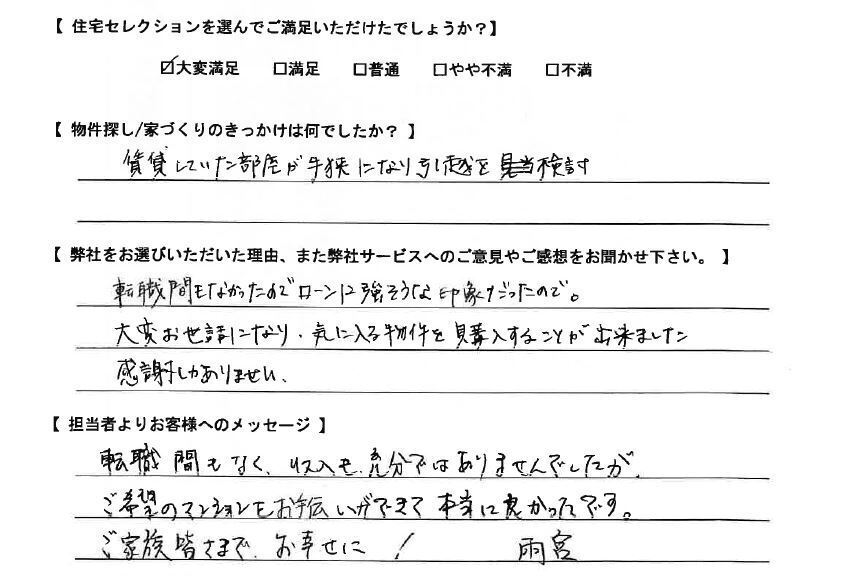 【 住宅セレクションを選んでご満足いただけたでしょうか？】
☑大変満足 □満足 □普通 □やや不満 □不満
【 物件探し/家づくりのきっかけは何でしたか？ 】
賃貸していた部屋が手狭になり引越を 検討
【 弊社をお選びいただいた理由、また弊社サービスへのご意見やご感想をお聞かせ下さい。 】
転職間もなかったのでローンに強そうな印象だったので。
大変お世話になり、気に入る物件を購入することが出来ました
感謝しかありません、
【 担当者よりお客様へのメッセージ 】
転職間もなく、収入も充分ではありませんでしたが、
ご希望のマンションをお手伝いができて本当に良かったです。
ご家族皆さまで、お幸せに！ 雨宮